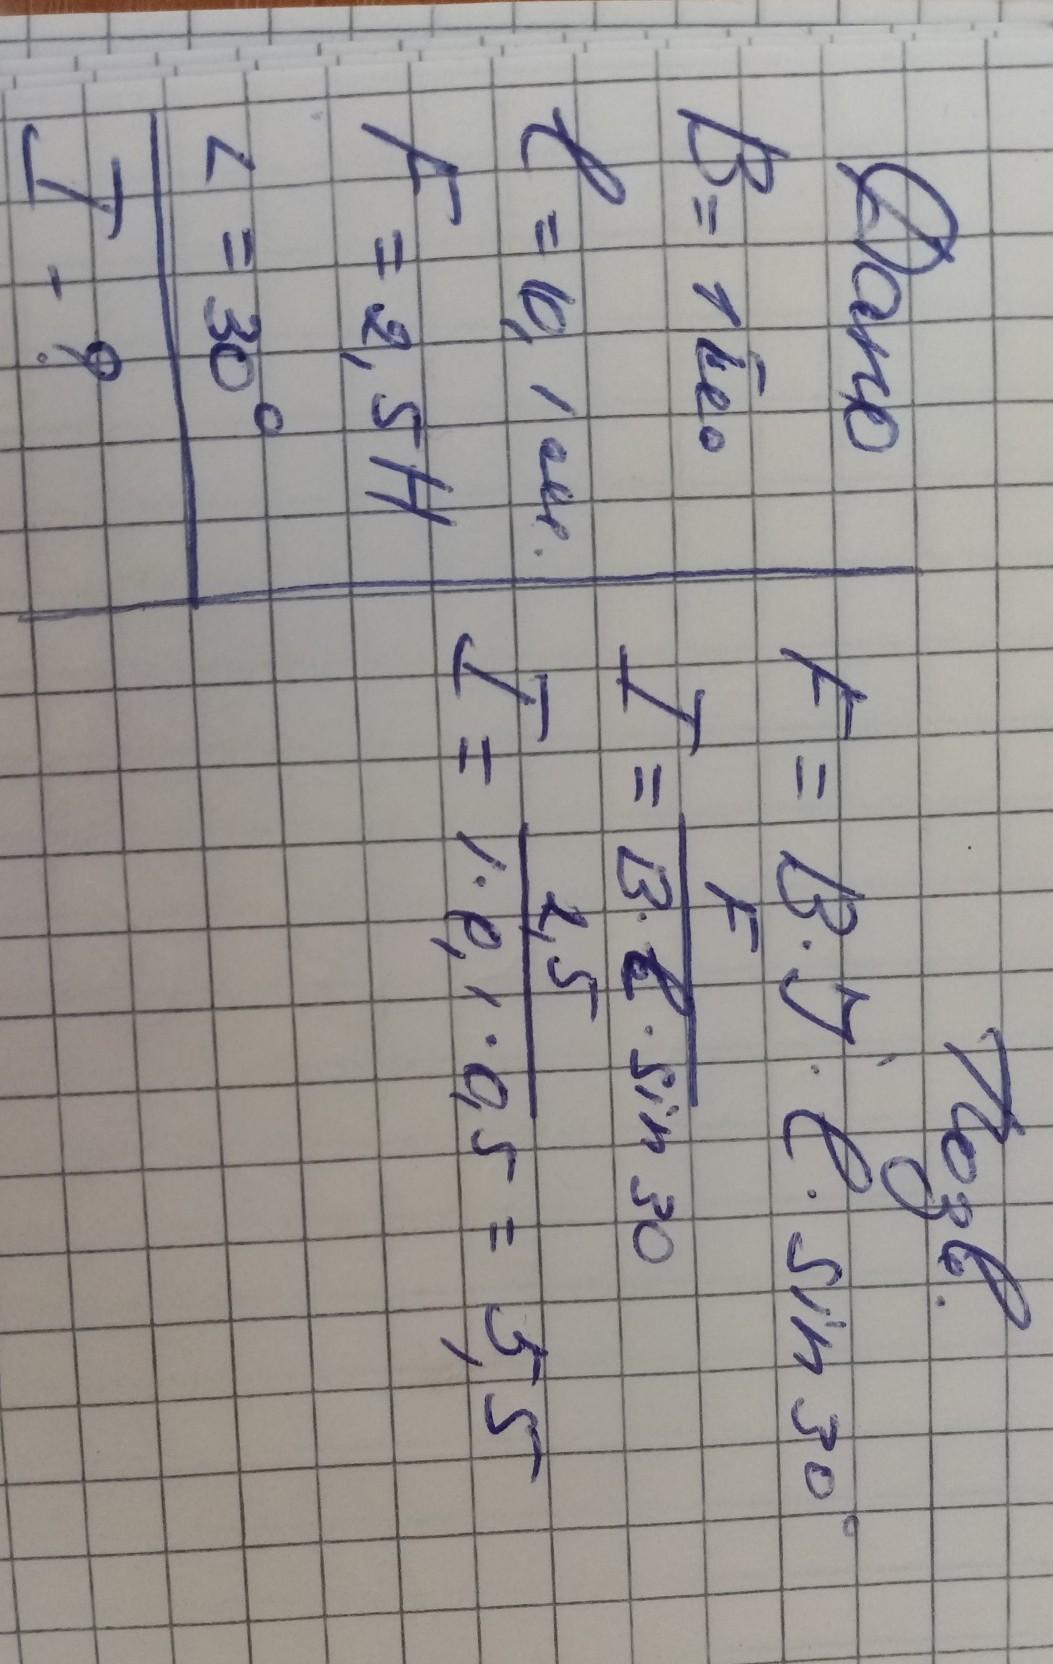 Дано
B = 1 Тл
l = 0,1 м.
F = 2,5 H
∠ = 30°
I - ?
F = B · I · l · sin 30°
I = F / B · l · sin 30
I = 2,5 / 1 · 0,1 · 0,5 = 5,5